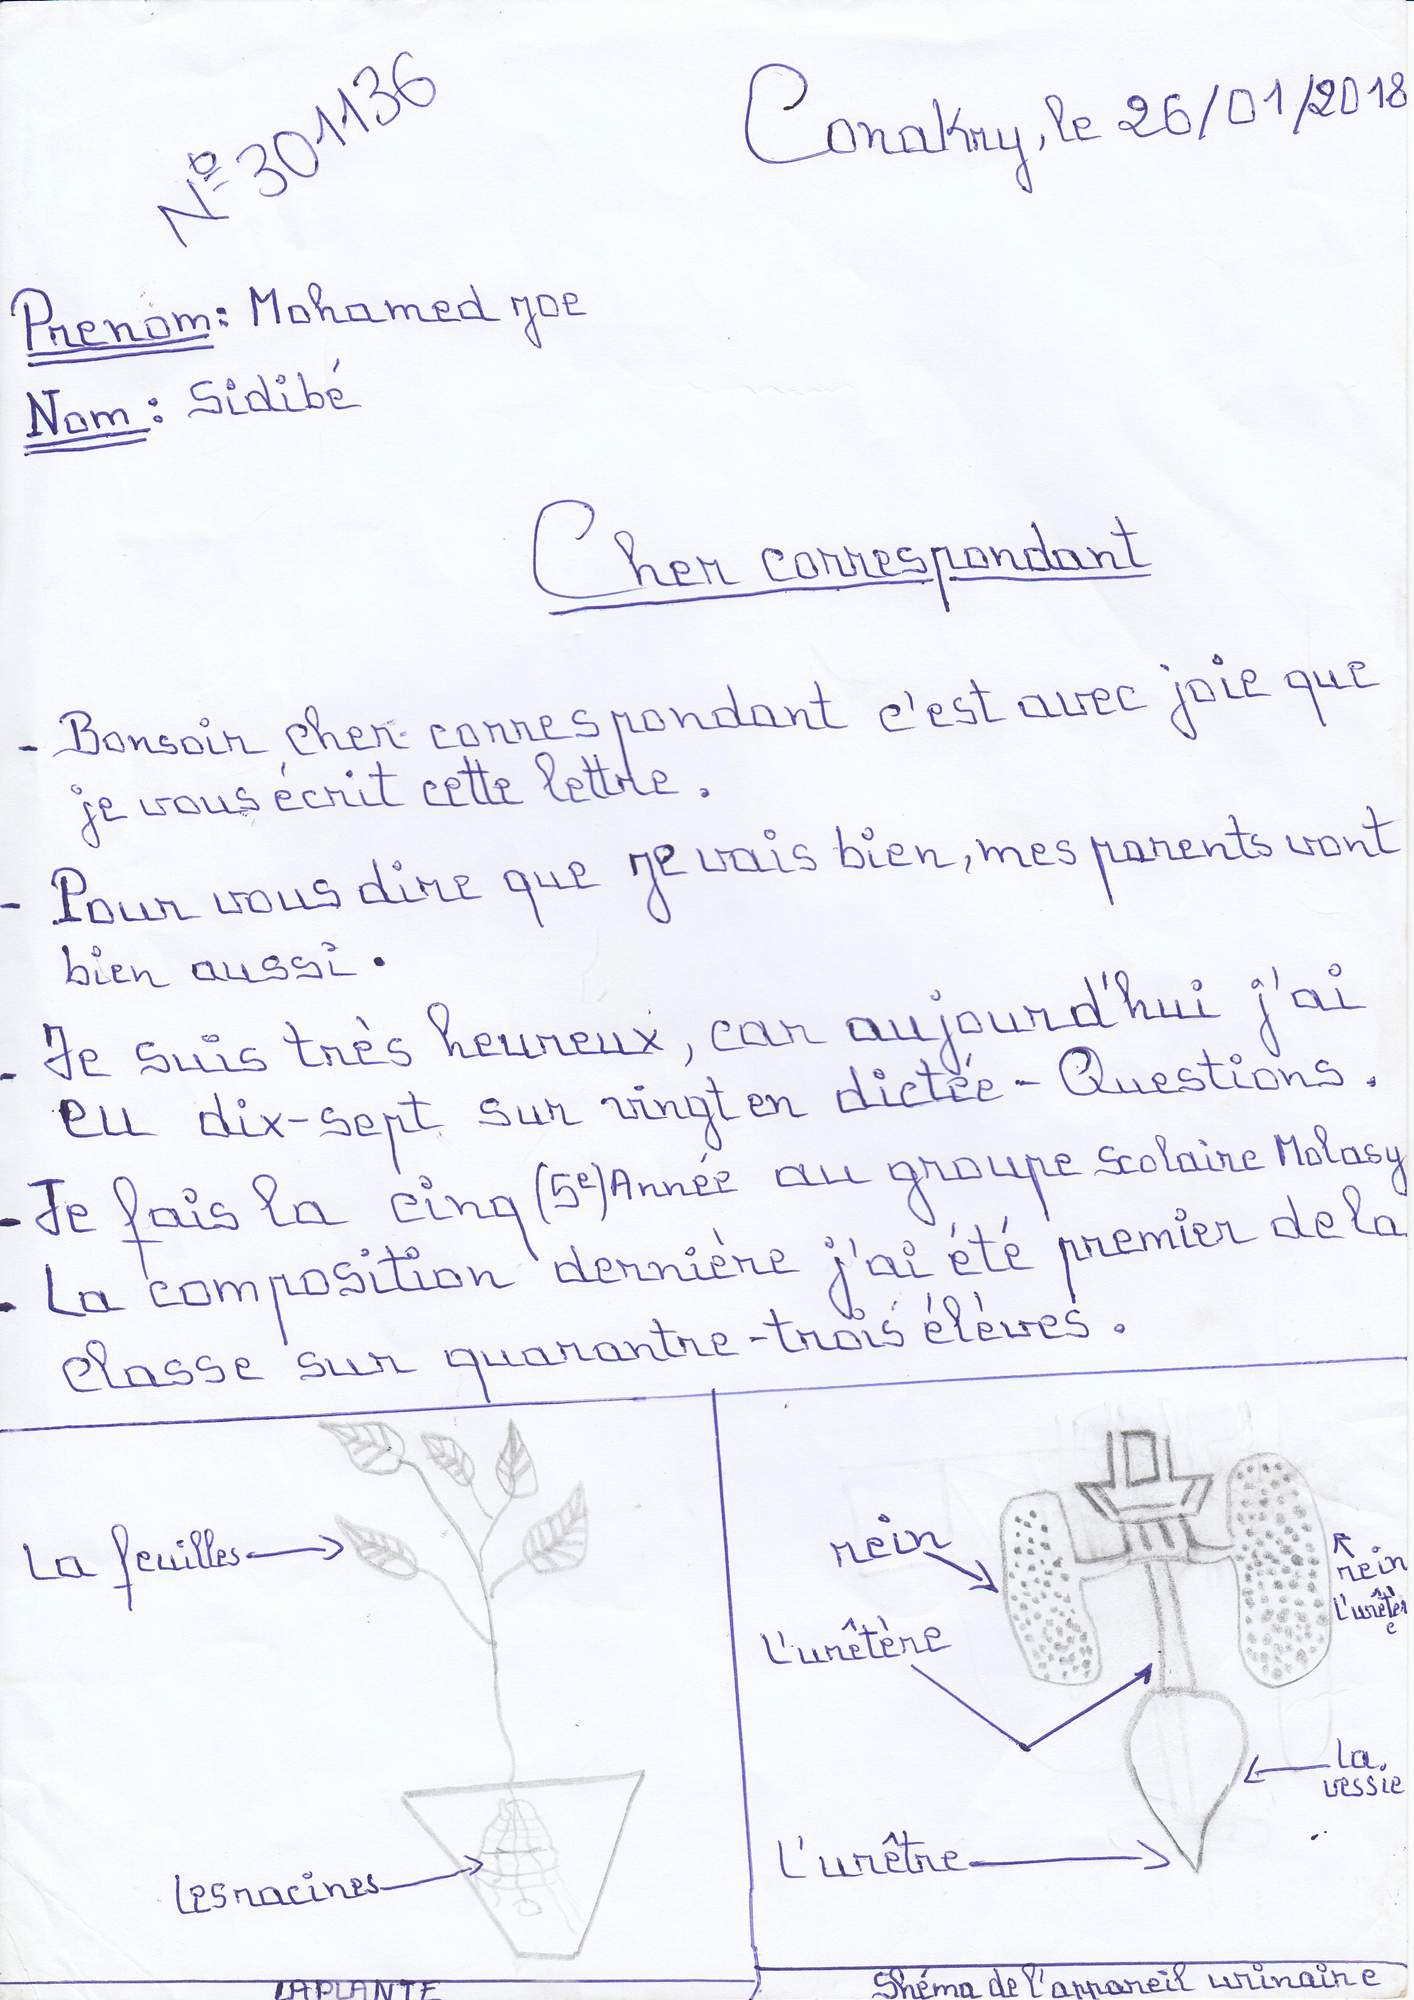 N° 301136
Conakry, le 26/01/2018
Prenom: Mohamed joe
Nom: Sidibé
Cher correspondant
- Bonsoir cher correspondant c'est avec joie que
je vous écrit cette lettre.
- Pour vous dire que je vais bien, mes parents vont
bien aussi.
- Je suis très heureux, car aujourd'hui j'ai
eu dix-sept sur vingt en dictée - Questions.
- Je fais la cinq (5e) Année au groupe scolaire Molasy
- La composition dernière j'ai été premier de la
classe sur quarantre-trois élèves.
La feuilles
Les racines
LA PLANTE
rein
L'urêtère
rein
L'urêtèr
e
La
vessie
L'urêtre
Shéma de l'appareil urinaire